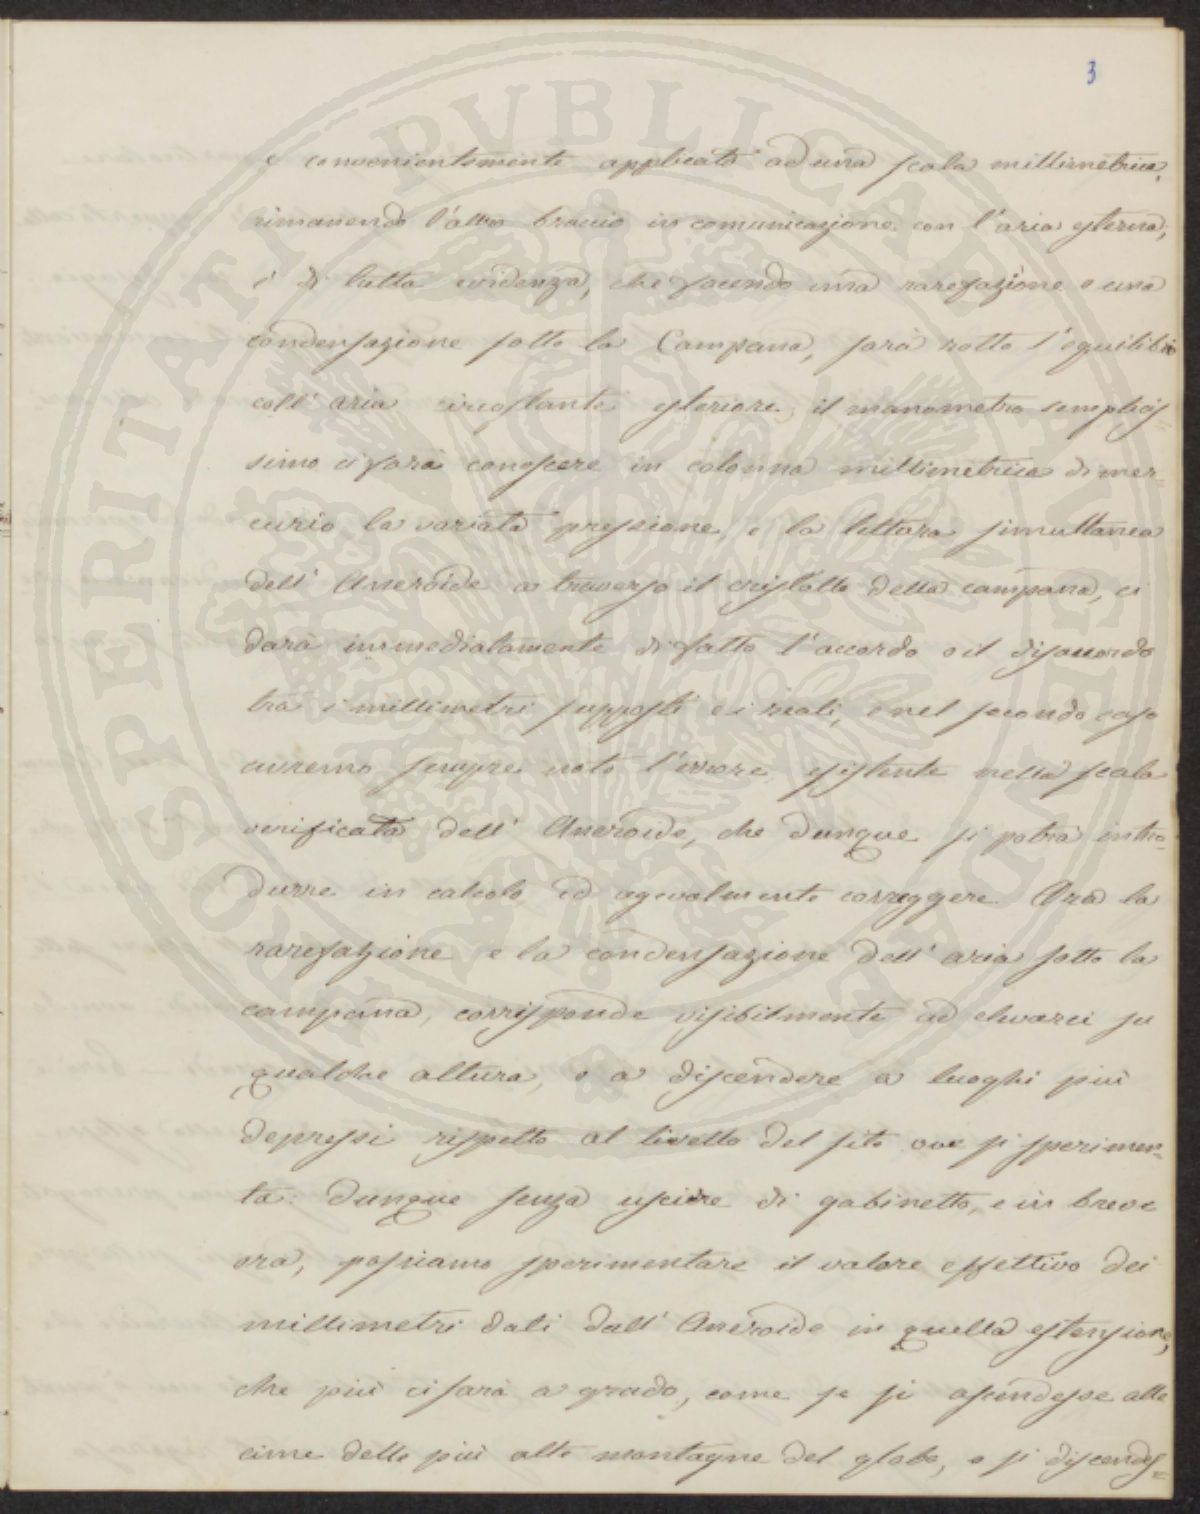 3
e convenientemente applicata ad una scala millimetrica,
rimanendo l'altro braccio in comunicazione con l'aria esterna,
è di tutta evidenza, che facendo una rarefazione o una
condensazione sotto la Campana, sarà rotto l'equilibrio
coll' aria circostante esteriore, il manometro semplicis=
simo ci farà conoscere in colonna millimetrica di mer=
curio la variata pressione, e la lettura simultanea
dell' Aneroide a traverso il cristallo della campana, ci
darà immediatamente di fatto l'accordo o il disaccordo
tra i millimetri supposti e i reali, e nel secondo caso
avremo sempre noto l'errore esistente nella scala
verificata dell' Aneroide, che dunque si potrà intro=
durre in calcolo ed agevolmente correggere. Ora la
rarefazione e la condensazione dell' aria sotto la
campana, corrisponde visibilmente ad elevarci su
qualche altura, o a discendere a luoghi più
depressi rispetto al livello del sito ove si sperimen=
ta: dunque senza uscire di gabinetto, e in breve
ora, possiamo sperimentare il valore effettivo dei
millimetri dati dall' Aneroide in quella estensione,
che più ci sarà a grado, come se si ascendesse alle
cime delle più alte montagne del globo, o si discendes=
PROSPERITATI PUBLICAE AUGENDAE